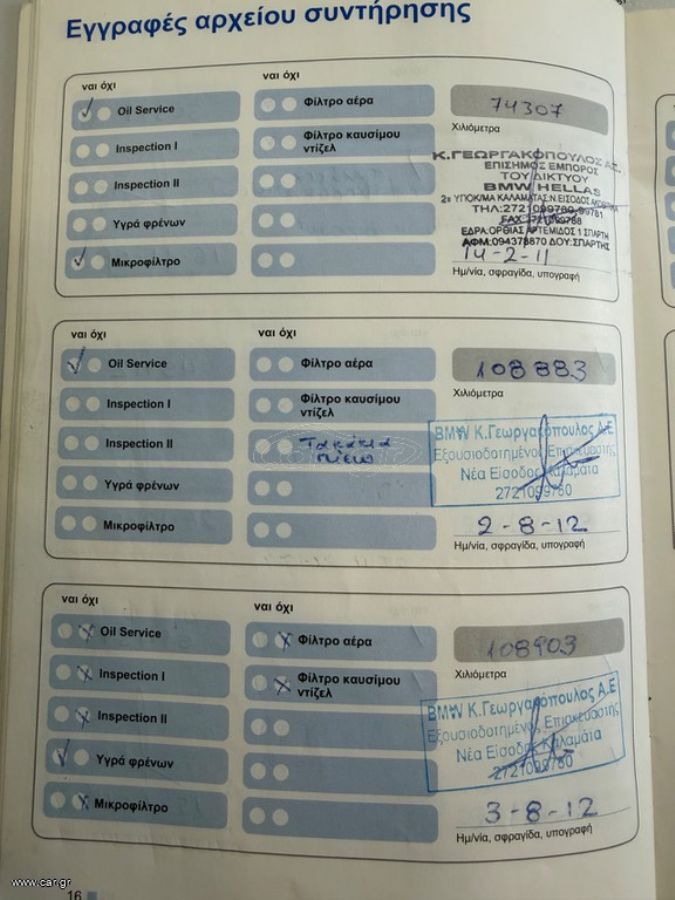 Εγγραφές αρχείου συντήρησης
ναι όχι
ναι όχι
Oil Service
Φίλτρο αέρα
74307
Χιλιόμετρα
Inspection I
Φίλτρο καυσίμου
ντίζελ
Inspection II
Υγρά φρένων
Μικροφίλτρο
Κ.ΓΕΩΡΓΑΚΟΠΟΥΛΟΣ ΑΕ.
ΕΠΙΣΗΜΟΣ ΕΜΠΟΡΟΣ
ΤΟΥ ΔΙΚΤΥΟΥ
BMW HELLAS
2ο ΥΠΟΚ/ΜΑ ΚΑΛΑΜΑΤΑΣ:Ν.ΕΙΣΟΔΟΣ
ΤΗΛ:2721099760-99781
FAX:2721099788
ΕΔΡΑ.ΟΡΘΙΑΣ ΑΡΤΕΜΙΔΟΣ 1 ΣΠΑΡΤΗ
ΑΦΜ:094378870 ΔΟΥ:ΣΠΑΡΤΗΣ
14-2-11
Ημ/νία, σφραγίδα, υπογραφή
ναι όχι
ναι όχι
Oil Service
Φίλτρο αέρα
108883
Χιλιόμετρα
Inspection I
Φίλτρο καυσίμου
ντίζελ
Inspection II
Τακάκια
πίσω
Υγρά φρένων
Μικροφίλτρο
BMW Κ.Γεωργακόπουλος Α.Ε
Εξουσιοδοτημένος Επισκευαστής
Νέα Είσοδος Καλαμάτα
2721099760
2-8-12
Ημ/νία, σφραγίδα, υπογραφή
ναι όχι
ναι όχι
Oil Service
Φίλτρο αέρα
108903
Χιλιόμετρα
Inspection I
Φίλτρο καυσίμου
ντίζελ
Inspection II
Υγρά φρένων
Μικροφίλτρο
BMW Κ.Γεωργακόπουλος Α.Ε
Εξουσιοδοτημένος Επισκευαστής
Νέα Είσοδος Καλαμάτα
2721099760
3-8-12
Ημ/νία, σφραγίδα, υπογραφή
www.car.gr
16